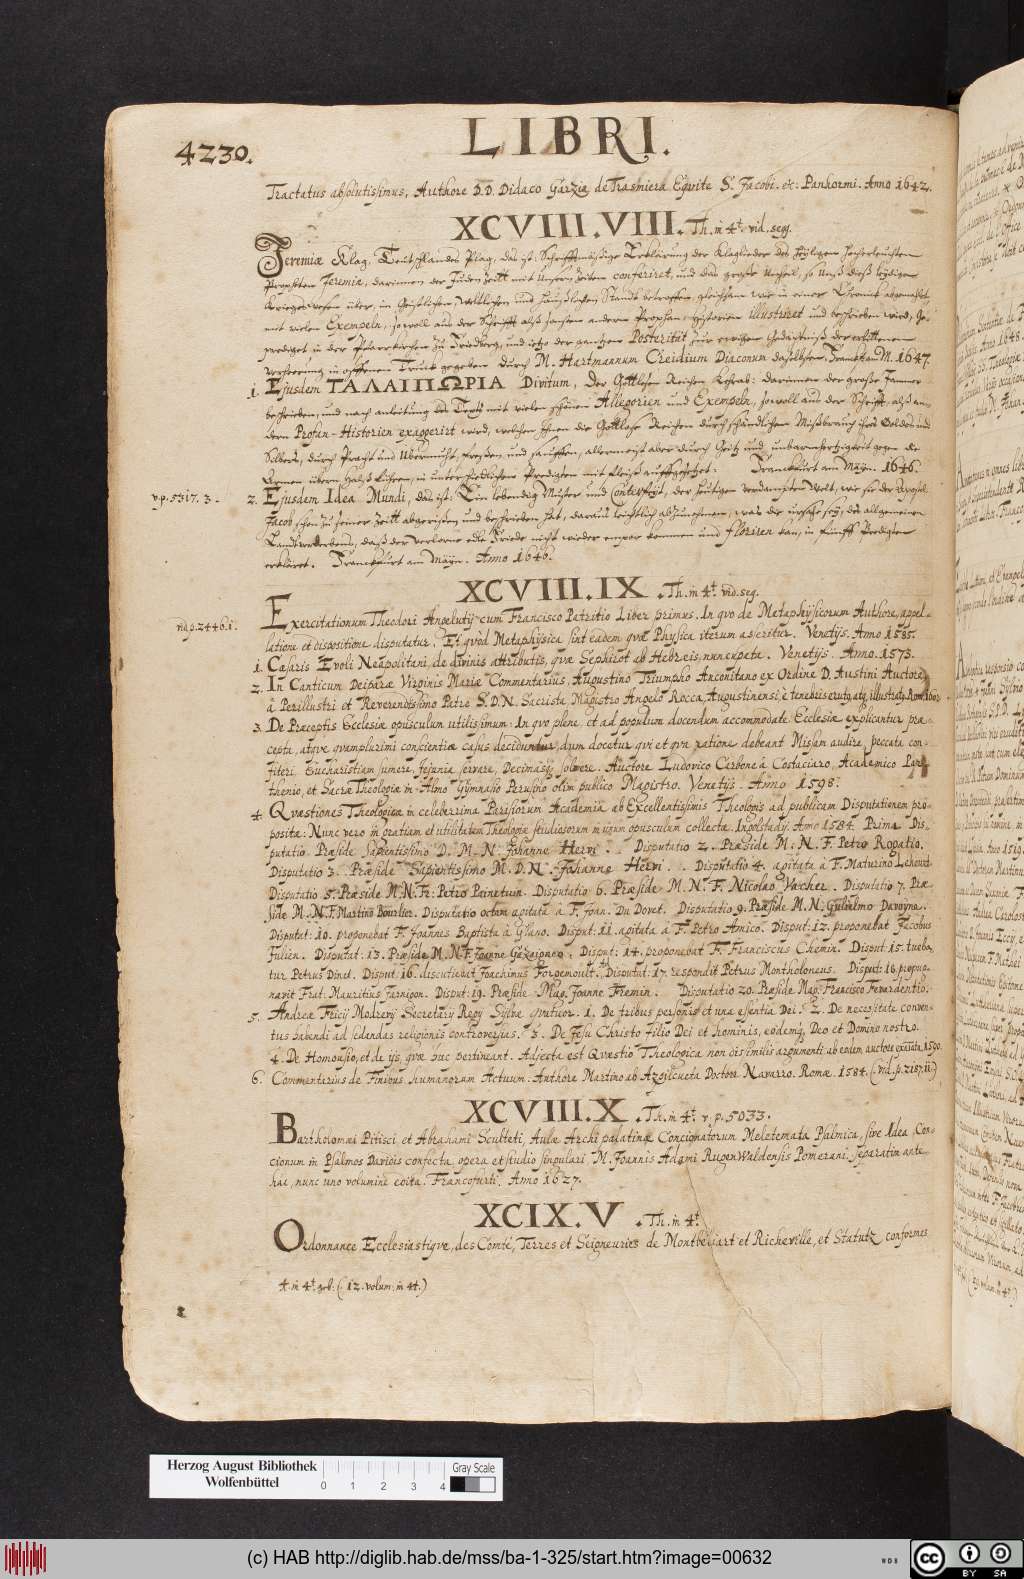 4230.
LIBRI.
Tractatus absolutissimus, Authore D.D. Didaco Garzia de Trasmiera Equite S. Jacobi. etc. Panhormi. Anno 1642.
XCVIII.VIII. Th. in 4t. vid. seq.
Jeremiæ Klag. Teutschlandes Plag, das ist, Schrifftmäsige Erklärung der Klaglieder des Heyligen Hocherleuchten
Propheten Jeremiæ, darinnen der Juden Zeitt mit Unsern Zeiten conferiret, und das große Unheil, so Unß dieß leydige
Kriegswesen über, in Geistlichen Weltlichen und Häußlichen Stande betroffen, gleichsam wie in einer Chronick abgemahlet,
mit vielen Exempeln, sowoll aus der Schrifft alß sonsten andern Prophan-Historien illustriret und beschrieben wird, Ge-
prediget in der Pfarrkirchen zu Friedberg, und ietzo der gantzen Posteritât zur ewigen Gedächtniß der erlittenen
in offenen Truck gegeben durch M. Hartmannum Creidium Diaconum daselbsten. Franckf. am M. 1647.
1. Ejusdem ΤΑΛΑΙΠΩΡΙΑ Divitum, Der Gottlosen Reichen Kehrab: darinnen der große Jammer
beschrieben, und nach anleitung des Texts mit vielen schönen Allegorien und Exempeln, sowoll aus der Schrifft, alß an-
dern Profan-Historien exaggerirt wird, welchen Ihnen die Gottlose Reichen durch schändlichen Mißbrauch ihres Goldes und
Silbers, durch Pracht und Ubermuht, freßen, und sauffen, allermeist aber durch Geitz und unbarmhertzigkeit gegen die
Armen, übern Halß führen, in unterschiedlichen Predigten mit fleiß auffgesetzet: Franckfurt am Mäyn. 1646.
v.p. 5317. 3.
2. Ejusdem Idea Mundi, das ist: Ein lebendig Muster und Conterfeyt, der heutigen verdampten Welt, wie sie der Apostel
Jacob schon zu seiner Zeitt abgerißen, und beschrieben hat, daraus leichtlich abzunehmen, was die ursache sey, des allgemeinen
Landsverderbens, daß der verlorne edle Friede nicht wieder empor kommen und floriren kan, in fünff Predigten
erkläret. Franckfurt am Mäyn. Anno 1646.
XCVIII.IX. Th. in 4t. vid. seq.
vid. p. 2446. 1.
Exercitationum Theodori Angelutij cum Francisco Patritio Liber primus. In quo de Metaphysicorum Authore, appel-
latione et dispositione disputatur. Et quòd Metaphysica sint eadem quæ Physica iterum asseritur. Venetijs. Anno 1585.
1. Cæsaris Evoli Neapolitani, de divinis attributis, quæ Sephirot ab Hebreis nuncupata. Venetijs. Anno. 1573.
2. In Canticum Deiparæ Virginis Mariæ Commentarius, Augustino Triumpho Anconitano ex Ordine D. Austini Auctore,
à Perillustri et Reverendissimo Petro S.D.N. Sacrista Magistro Angelo Rocca, Augustinensi è tenebris erutus atq; illustratus. Romæ 1602
3. De Præceptis Ecclesiæ opusculum utilissimum: In quo plene, et ad populum docendum accommodate, Ecclesiæ explicantur præ-
cepta, atque quamplurimi conscientiæ casus deciduntur, dum docetur qui et qua ratione debeant Missam audire, peccata con-
fiteri, Eucharistiam sumere, jejunia servare, Decimasq; solvere. Auctore Ludovico Carbone à Costaciaro, Academico Par-
thenio, et Sacræ Theologiæ in Almo Gymnasio Perusino olim publico Magistro. Venetijs. Anno 1598.
4. Quæstiones Theologicæ in celeberrima Parisiorum Academia ab Excellentissimis Theologis ad publicam Disputationem pro-
positæ: Nunc vero in gratiam et utilitatem Theologiæ studiosorum in unum opusculum collectæ. Ingolstadij. Anno 1584. Prima Dis-
putatio Præside Sapientissimo D. M. N. Johanne Hervi. Disputatio 2. Præside M. N. F. Petro Ropatio.
Disputatio 3. Præside Sapientissimo M. D. N. Johanne Hervi. Disputatio 4. agitata à F. Maturino Lehourd.
Disputatio 5. Præside M. N. Fr. Petro Painetvin. Disputatio 6. Præside M. N. F. Nicolao Vaccher. Disputatio 7. Præ-
side M. N. F. Martino Bourlier. Disputatio octava agitata à F. Joan. Du Dovet. Disputatio 9. Præside M. N. Gulielmo Davoyne.
Disputat: 10. proponebat F. Joannes Baptista à Glano. Disput: 11. agitata à F. Petro Amico. Disput: 12. proponebat Jacobus
Julien. Disputat: 13. Præside M. N. F. Joanne Gazaigneo. Disput: 14. proponebat F. Franciscus Chemin. Disput: 15. tueba-
tur Petrus Dinet. Disput: 16. discutiebat Joachimus Forgemoult. Disputat: 17. respondit Petrus Montholoneus. Disput: 18. propug-
navit Frat: Mauritius Jarnigon. Disput: 19. Præside Mag. Joanne Fremin. Disputatio 20. Præside Mag. Francisco Fevardentio.
5. Andreæ Fricij Modrevij Secretarij Regij Sylvæ quatuor. 1. De tribus personis et una essentia Dei. 2. De necessitate conven-
tus habendi ad sedandas religionis controversias. 3. De Jesu Christo filio Dei et hominis, eodemq; Deo et Domino nostro.
4. De Homousio, et de ijs, quæ huc pertineant. Adjecta est Quæstio Theologica non dissimilis argumenti ab eodem auctore exarata. 1590.
6. Commentarius de Finibus humanorum Actuum. Authore Martino ab Azpilcueta Doctore Navarro. Romæ. 1584. (vid. p. 2187. 11.)
XCVIII.X. Th. in 4t. v. p. 5033.
Bartholomæi Pitisci et Abrahami Sculteti, Aulæ Archipalatinæ Concionatorum Meletemata Psalmica, sive Idea Con-
cionum in Psalmos Davidis confecta opera et studio singulari M. Joannis Adami RugenWaldensis Pomerani, separatim ante
hac, nunc uno volumine edita. Francofurti. Anno 1627.
XCIX.V. Th. in 4t.
Ordonnance Ecclesiastique, des Comté, Terres et Seigneuries de Montbeliart et Richeville, et Statutz conformes
4. in 4t. geb. (12. volum. in 4t.)
Herzog August Bibliothek
Wolfenbüttel
0 1 2 3 4
Gray Scale
(c) HAB http://diglib.hab.de/mss/ba-1-325/start.htm?image=00632
WDB
cc
BY SA